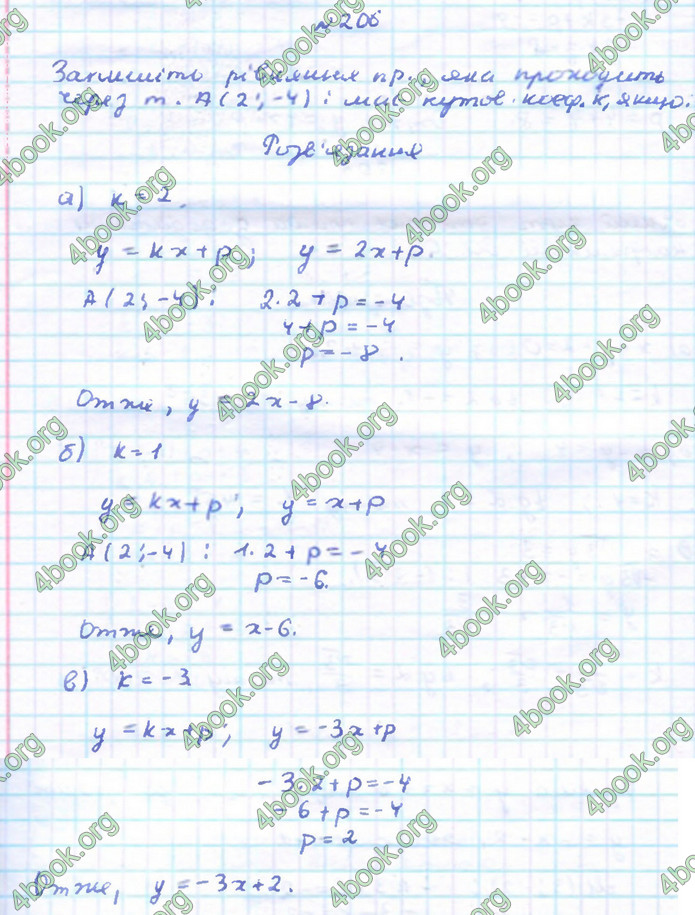 №206
Запишіть рівняння пр., яка проходить
через т. А(2; -4) і має кутов. коеф. k, якщо:
Розв'язання
а) k = 2.
y = kx + p; y = 2x + p.
A(2; -4): 2·2 + p = -4
4 + p = -4
p = -8.
Отже, y = 2x - 8.
б) k = 1
y = kx + p; y = x + p
A(2; -4): 1·2 + p = -4
p = -6.
Отже, y = x - 6.
в) k = -3
y = kx + p; y = -3x + p
-3·2 + p = -4
-6 + p = -4
p = 2
Отже, y = -3x + 2.
4book.org